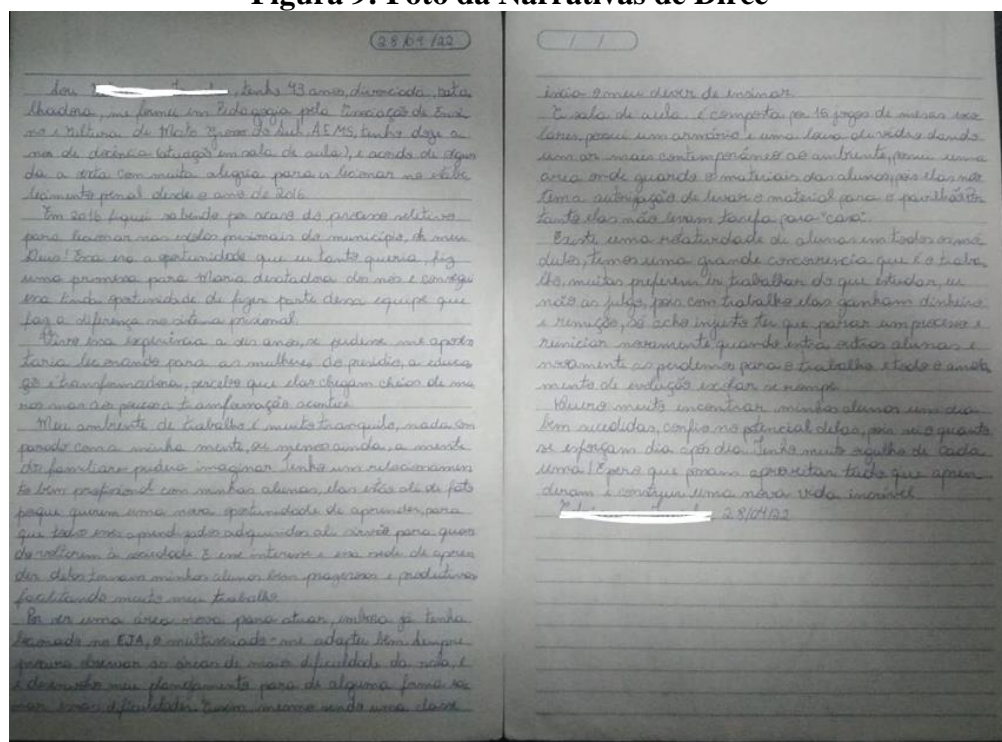 Figura 9: Foto da Narrativas de Dirce
28/04/22
Sou , tenho 43 anos, divorciada, bata
lhadora, me formei em Pedagogia pela Associação de Ensi
no e Cultura de Mato Grosso do Sul, AEMS, tenho doze a
nos de docência (atuação em sala de aula), e acordo de segun
da a sexta com muita alegria para ir lecionar no estabe
lecimento penal desde o ano de 2016.
Em 2016 fiquei sabendo por acaso do processo seletivo
para lecionar nas celas prisionais do município, oh meu
Deus! Essa era a oportunidade que eu tanto queria, fiz
uma promessa para Maria desatadora dos nós e consegui
essa linda oportunidade de fazer parte dessa equipe que
faz a diferença no sistema prisional.
Vivo essa experiência a seis anos, se pudesse me aposen
taria lecionando para as mulheres do presídio, a educa
ção é transformadora, percebo que elas chegam cheias de
nos mas aos poucos a transformação acontece.
Meu ambiente de trabalho é muito tranquilo, nada com
parado com a minha mente, ou menos ainda, a mente
dos familiares poderia imaginar. Tenho um relacionamen
to bem profissional com minhas alunas, elas estão ali de fato
porque querem uma nova oportunidade de aprender, para
que todo esses aprendizados adquiridos ali sirva para quan
do voltarem à sociedade. E esse interesse e essa sede de apren
der delas tornam minhas alunas bem prazerosas e produtivas
facilitando muito meu trabalho.
Por ser uma área nova para atuar, embora já tenha
lecionado no EJA, o multisseriado me adaptei bem. Sempre
procuro observar as áreas de maior dificuldade da sala, e
desenvolvo meu planejamento para de alguma forma sa
nar essas dificuldades. mesmo sendo uma classe
/ /
é o meu dever de ensinar.
E sala de aula é composta por 16 jogos de mesas esco
lares, possui um armário e uma lousa de vidro dando
um ar mais contemporâneo ao ambiente, possui uma
área onde guardo o materiais das alunas, pois elas não
tema autorização de levar o material para o pavilhão. Por
tanto elas não levam tarefa para "casa".
Existe uma rotatividade de alunas em todos os mó
dulos, temos uma grande concorrencia que é o traba
lho, muitas preferem ir trabalhar do que estudar, eu
não as julgo, pois com trabalho elas ganham dinheiro
e remição, só acho injusto ter que parar um processo e
reiniciar novamente quando entra outras alunas e
novamente as perdemos para o trabalho e todo o anda
mento de evolução escolar se rompe.
Quero muito encontrar minhas alunas um dia
bem sucedidas, confio no potencial delas, pois sei o quanto
se esforçam dia após dia. Tenho muito orgulho de cada
uma! Espero que possam aproveitar tudo que apren
deram e construir uma nova vida incrível.
28/04/22